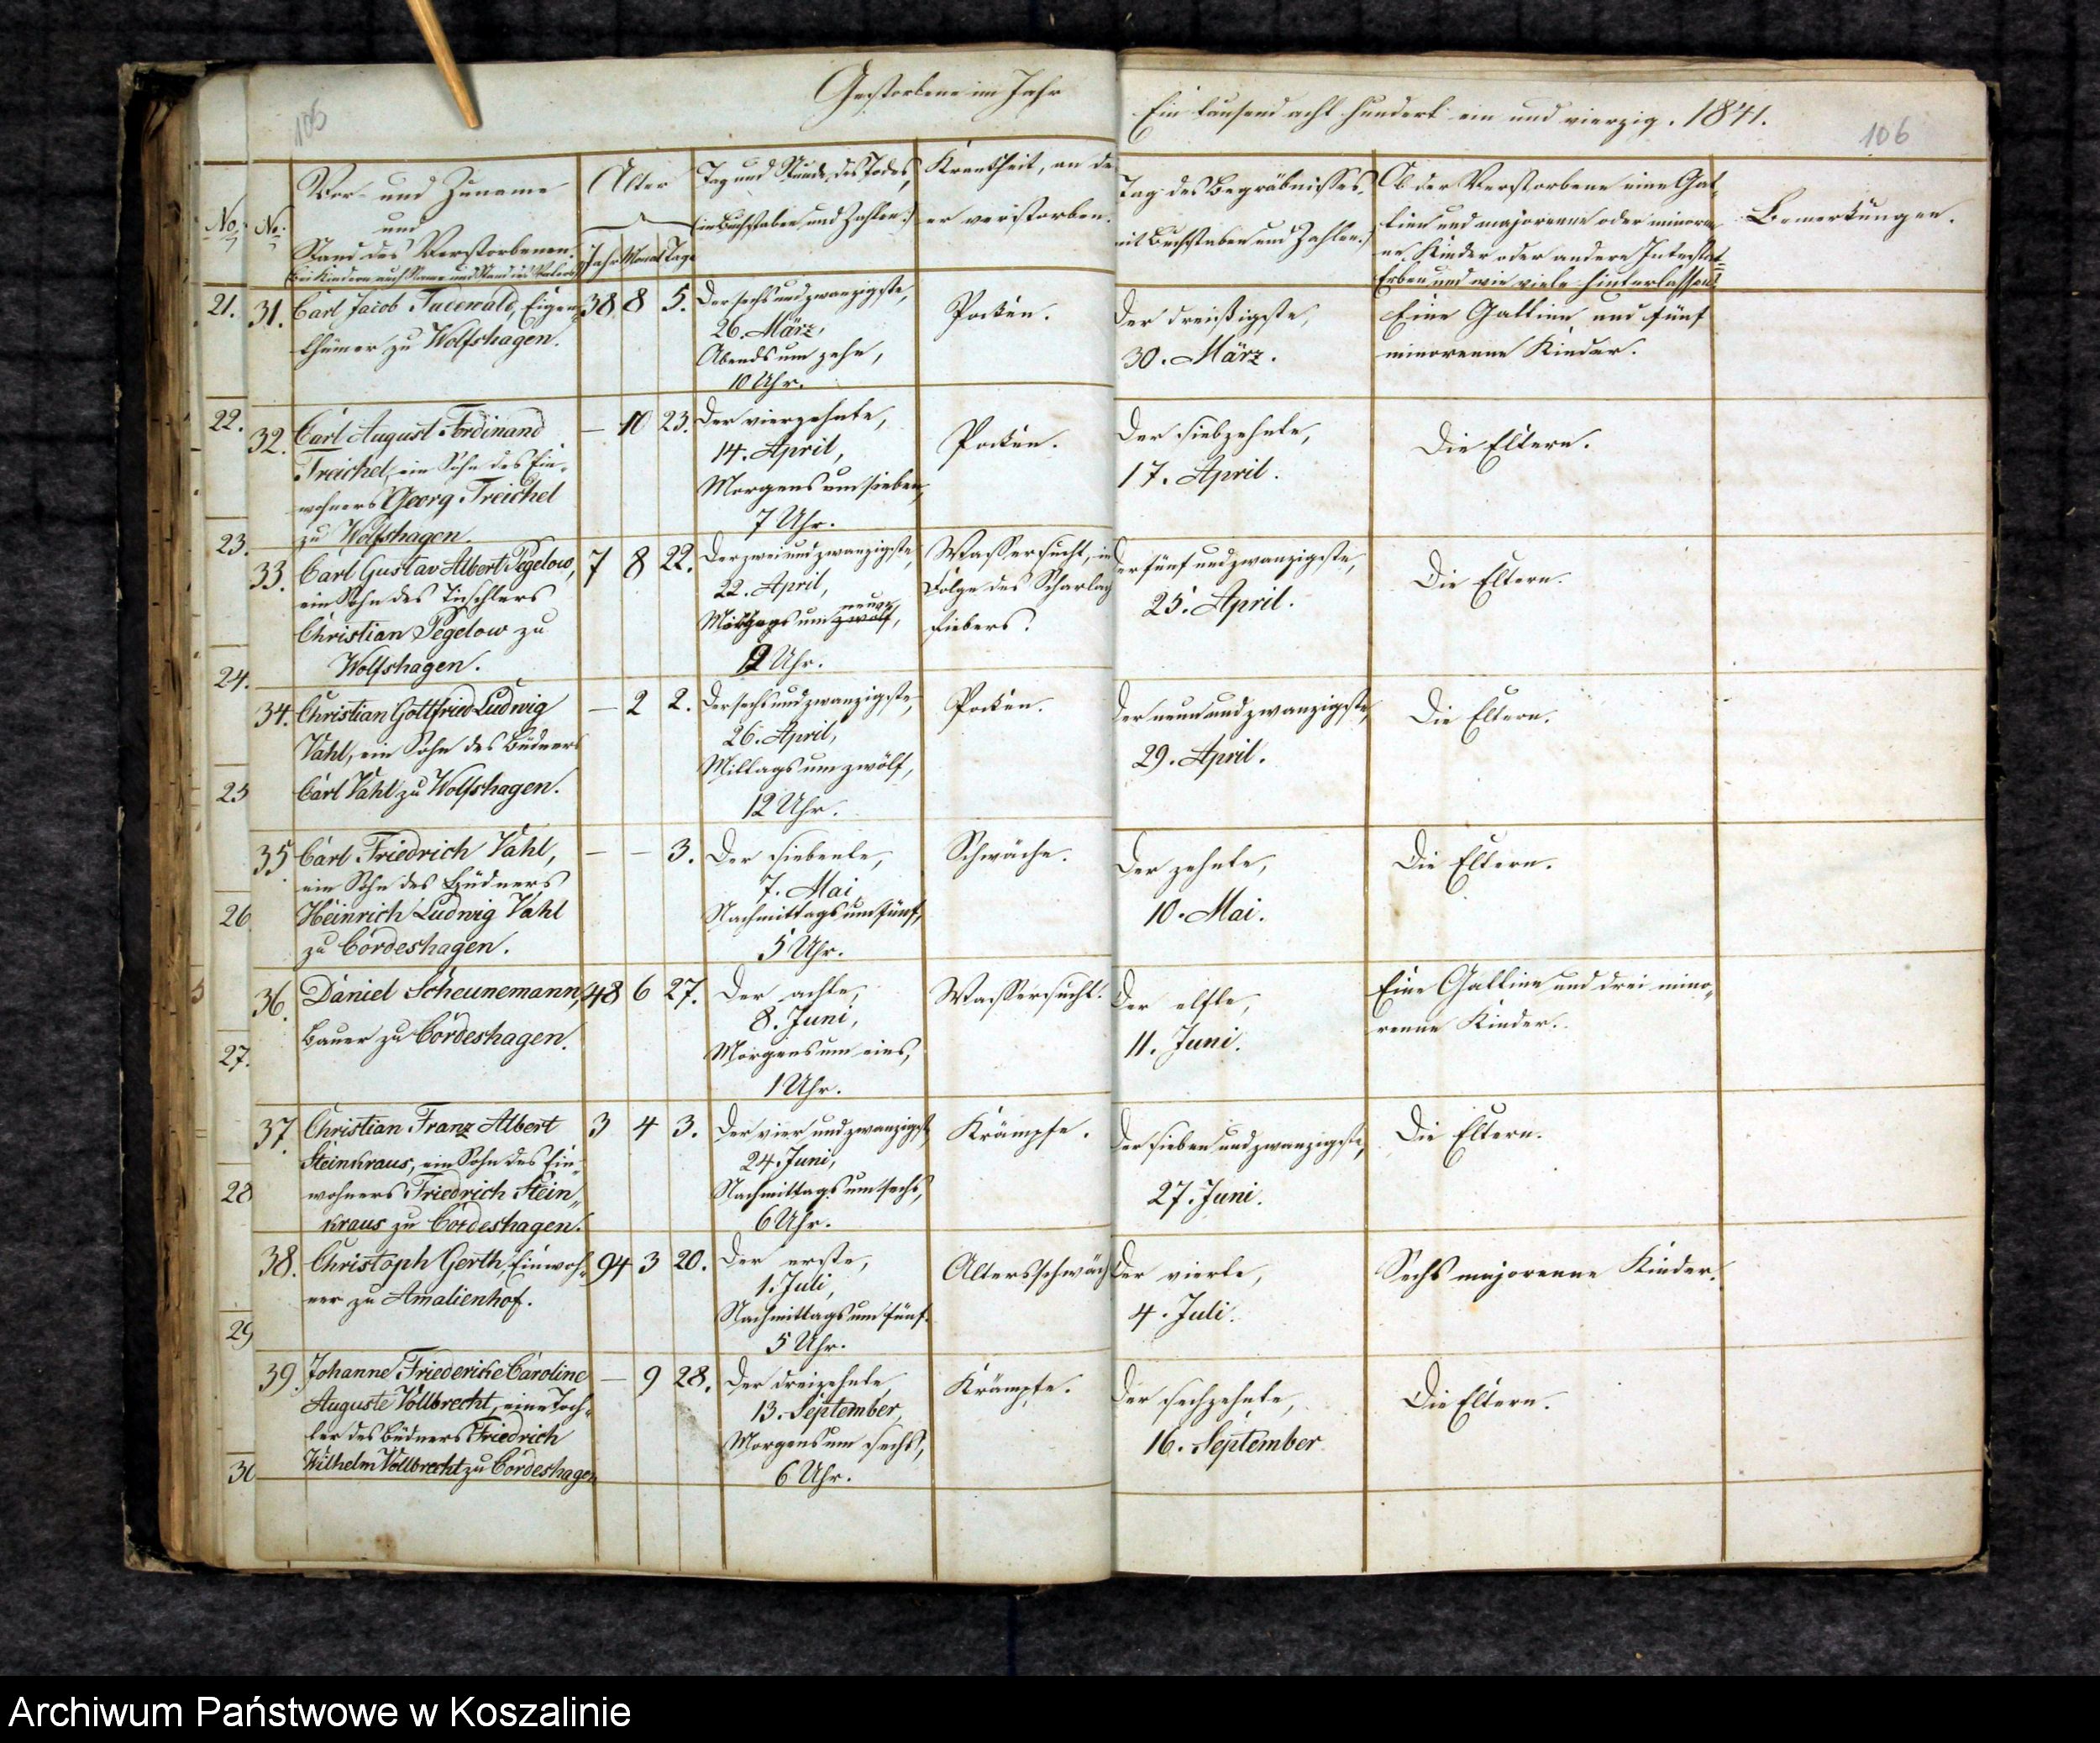 106
Gestorbene im Jahr
Ein tausend acht hundert ein und vierzig. 1841.
106
No.
No.
Vor- und Zuname
und
Stand des Verstorbenen.
(bei Kindern auch Name und Stand des Vaters)
Alter
Jahr Monat Tage
Tag und Stunde des Todes,
(in Buchstaben und Zahlen.)
Krankheit, an de
er verstorben.
Tag des Begräbnisses,
mit Buchstaben und Zahlen.)
Ob der Verstorbene eine Gat-
tien und majorenne oder minoren-
ne Kinder oder andere Intestat-
Erben und wie viele hinterlassen?
Bemerkungen.
21.
22.
23.
24.
25
26
27.
28
29
30
31. Carl Jacob Eigen- 38 8 5. Der sechs und zwanzigste, Pocken. Der dreißigste, Eine Gattinn und fünf
thümer zu Wolfshagen. 26. März, 30. März. minorenne Kinder.
Abends um zehn,
10 Uhr.
32. Carl August Ferdinand — 10 23. Der vierzehnte, Pocken. Der siebzehnte, Die Eltern.
Treichel, ein Sohn des Ein- 14. April, 17. April.
wohners Georg Treichel Morgens um sieben,
zu Wolfshagen. 7 Uhr.
33. Carl Gustav Albert Pegelow, 7 8 22. Der zwei und zwanzigste, Wassersucht, in Der fünf und zwanzigste, Die Eltern.
ein Sohn des Tischlers 22. April, Folge des Scharlach 25. April.
Christian Pegelow zu neun fiebers.
um zwölf,
Wolfshagen. 9 Uhr.
34. Christian Gottfried Ludwig — 2 2. Der sechs und zwanzigste, Pocken. Der neun und zwanzigste, Die Eltern.
Vahl, ein Sohn des Büdners 26. April, 29. April.
Carl Vahl zu Wolfshagen. Mittags um zwölf,
12 Uhr.
35. Carl Friedrich Vahl, — — 3. Der siebente, Schwäche. Der zehnte, Die Eltern.
ein Sohn des Büdners 7. Mai 10. Mai.
Heinrich Ludwig Vahl Nachmittags um fünf,
zu Cordeshagen. 5 Uhr.
36. Daniel Scheunemann, 48 6 27. Der achte, Wassersucht. Der elfte, Eine Gattinn und drei mino-
Bauer zu Cordeshagen. 8. Juni, 11. Juni. renne Kinder.
Morgens um eins,
1 Uhr.
37. Christian Franz Albert 3 4 3. Der vier und zwanzigste Krämpfe. Der sieben und zwanzigste, Die Eltern.
Steinkraus, ein Sohn des Ein- 24. Juni, 27. Juni.
wohners Friedrich Stein- Nachmittags um sechs,
kraus zu Cordeshagen. 6 Uhr.
38. Christoph Gerth, Einwoh- 94 3 20. Der erste, Altersschwäch Der vierte, Sechs majorenne Kinder.
ner zu Amalienhof. 1. Juli, 4. Juli.
Nachmittags um fünf.
5 Uhr.
39. Johanne Friedericke Caroline — 9 28. Der dreizehnte, Krämpfe. Der sechzehnte, Die Eltern.
Auguste Vollbrecht, eine Toch- 13. September, 16. September.
ter des Büdners Friedrich Morgens um sechs,
Wilhelm Vollbrecht zu Cordeshagen 6 Uhr.
Archiwum Państwowe w Koszalinie